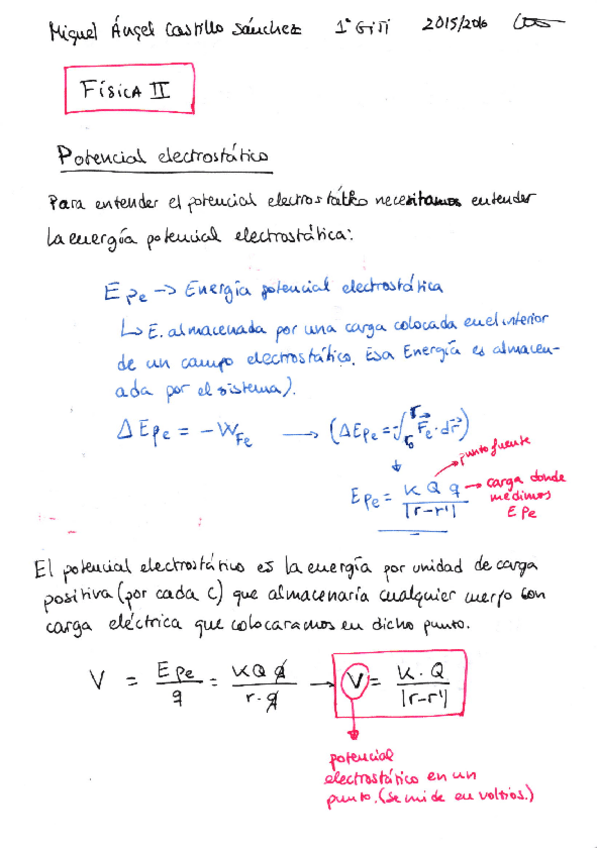 Miguel Ángel Castillo Sánchez 1º GITI 2015/2016
FÍSICA II
Potencial electrostático
Para entender el potencial electrostático necesitamos entender
la energía potencial electrostática:
E Pe -> Energía potencial electrostática
↳ E. almacenada por una carga colocada en el interior
de un campo electrostático. Esa Energía es almacen-
ada por el sistema).
Δ E Pe = - W Fe → (Δ E Pe = -∫ r₀ r F⃗e · dr⃗)
↓
punto fuente
E Pe = K Q q / |r-r'| → carga donde
medimos
E Pe
El potencial electrostático es la energía por unidad de carga
positiva (por cada C) que almacenaría cualquier cuerpo con
carga eléctrica que colocaramos en dicho punto.
V = E Pe / q = K Q q / r · q → V = K · Q / |r-r'|
potencial
electrostático en un
punto. (Se mide en voltios.)